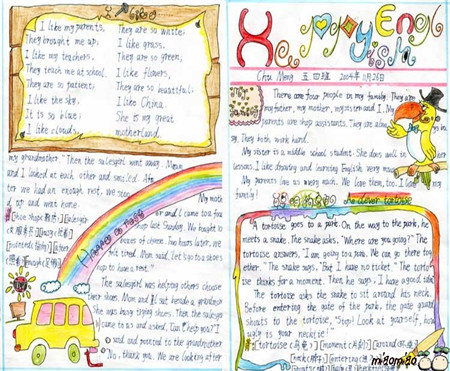 I like my parents,
They brought me up.
I like my teachers,
They teach me at school.
They are so patient!
I like the sky,
It is so blue!
I like clouds,
They are so white!
I like grass,
They are so green,
I like flowers,
They are so beautiful!
I like China.
She is my great
motherland.
my grandmother." Then the salesgirl went away. Mom
and I looked at each other and smiled.
ter we had an enough rest, we soon
up and went home.
My moth
er and I came to a
shop late Sunday. We fought to
of shoes. Two hours later, we
felt tired. Mom said, Let's go to a shoes
shop to have a rest."
The salesgirl was helping others choose
their shoes. Mom and I sat beside a grandmo
who was busy trying shoes. Then the salesgi
came to us and asked, "Can I help you?" I
said and pointed to the grandmother
"No, thank you. We are looking after
Happy English
Chu Meng 五四班 2004年11月26日
There are four people in my family. They are
my father, my mother, my sister and I. My
parents are shop assistants. They are also
They both work hard.
My sister is a middle school student. She does well in
lessons. I like drawing and learning English very much
My parents love us very much. We love them, too. I love my
family!
A clever tortoise
A tortoise goes to a park. On the way to the park, he
meets a snake. The snake asks, "Where are you going?" The
tortoise answers, "I am going to a park. We can go there tog
ether." The snake says, "But I have no ticket." The torto
ise thinks for a moment. Then, he says, "I have a good idea."
The tortoise asks the snake to sit around his neck.
Before entering the gate of the park, the gate guard
shouts to the tortoise, "Stop! Look at yourself, how
ugly is your necktie!"
miaomiao